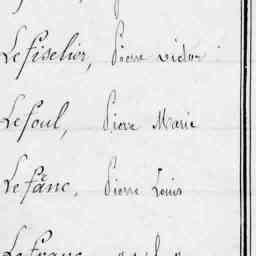 Lefiselier, Pierre victor
Lefoul, Pierre Marie
Lefranc, Pierre Louis
Lefranc